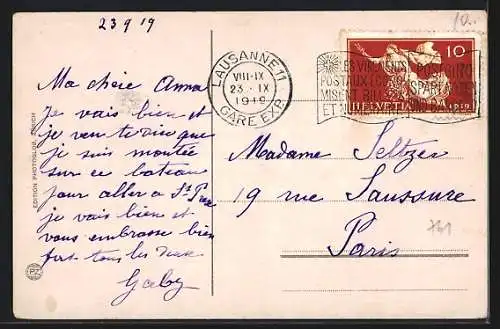 23 9 19
10.
LAUSANNE 11
VIII-IX
23. IX
1919
GARE EXP.
LES VIREMENTS
POSTAUX
ET
POSTGIRO
SPART
10
HELVETIA
1919
Ma chère Anna
Je vais bien et
je veux te dire que
je suis montée
sur ce bateau
pour aller a St
je vais bien et
vous embrasse bien
fort tous les deux
Gaby
EDITION PHOTOGLOB, ZÜRICH
Madame Seltzer
19 rue Saussure
Paris
761